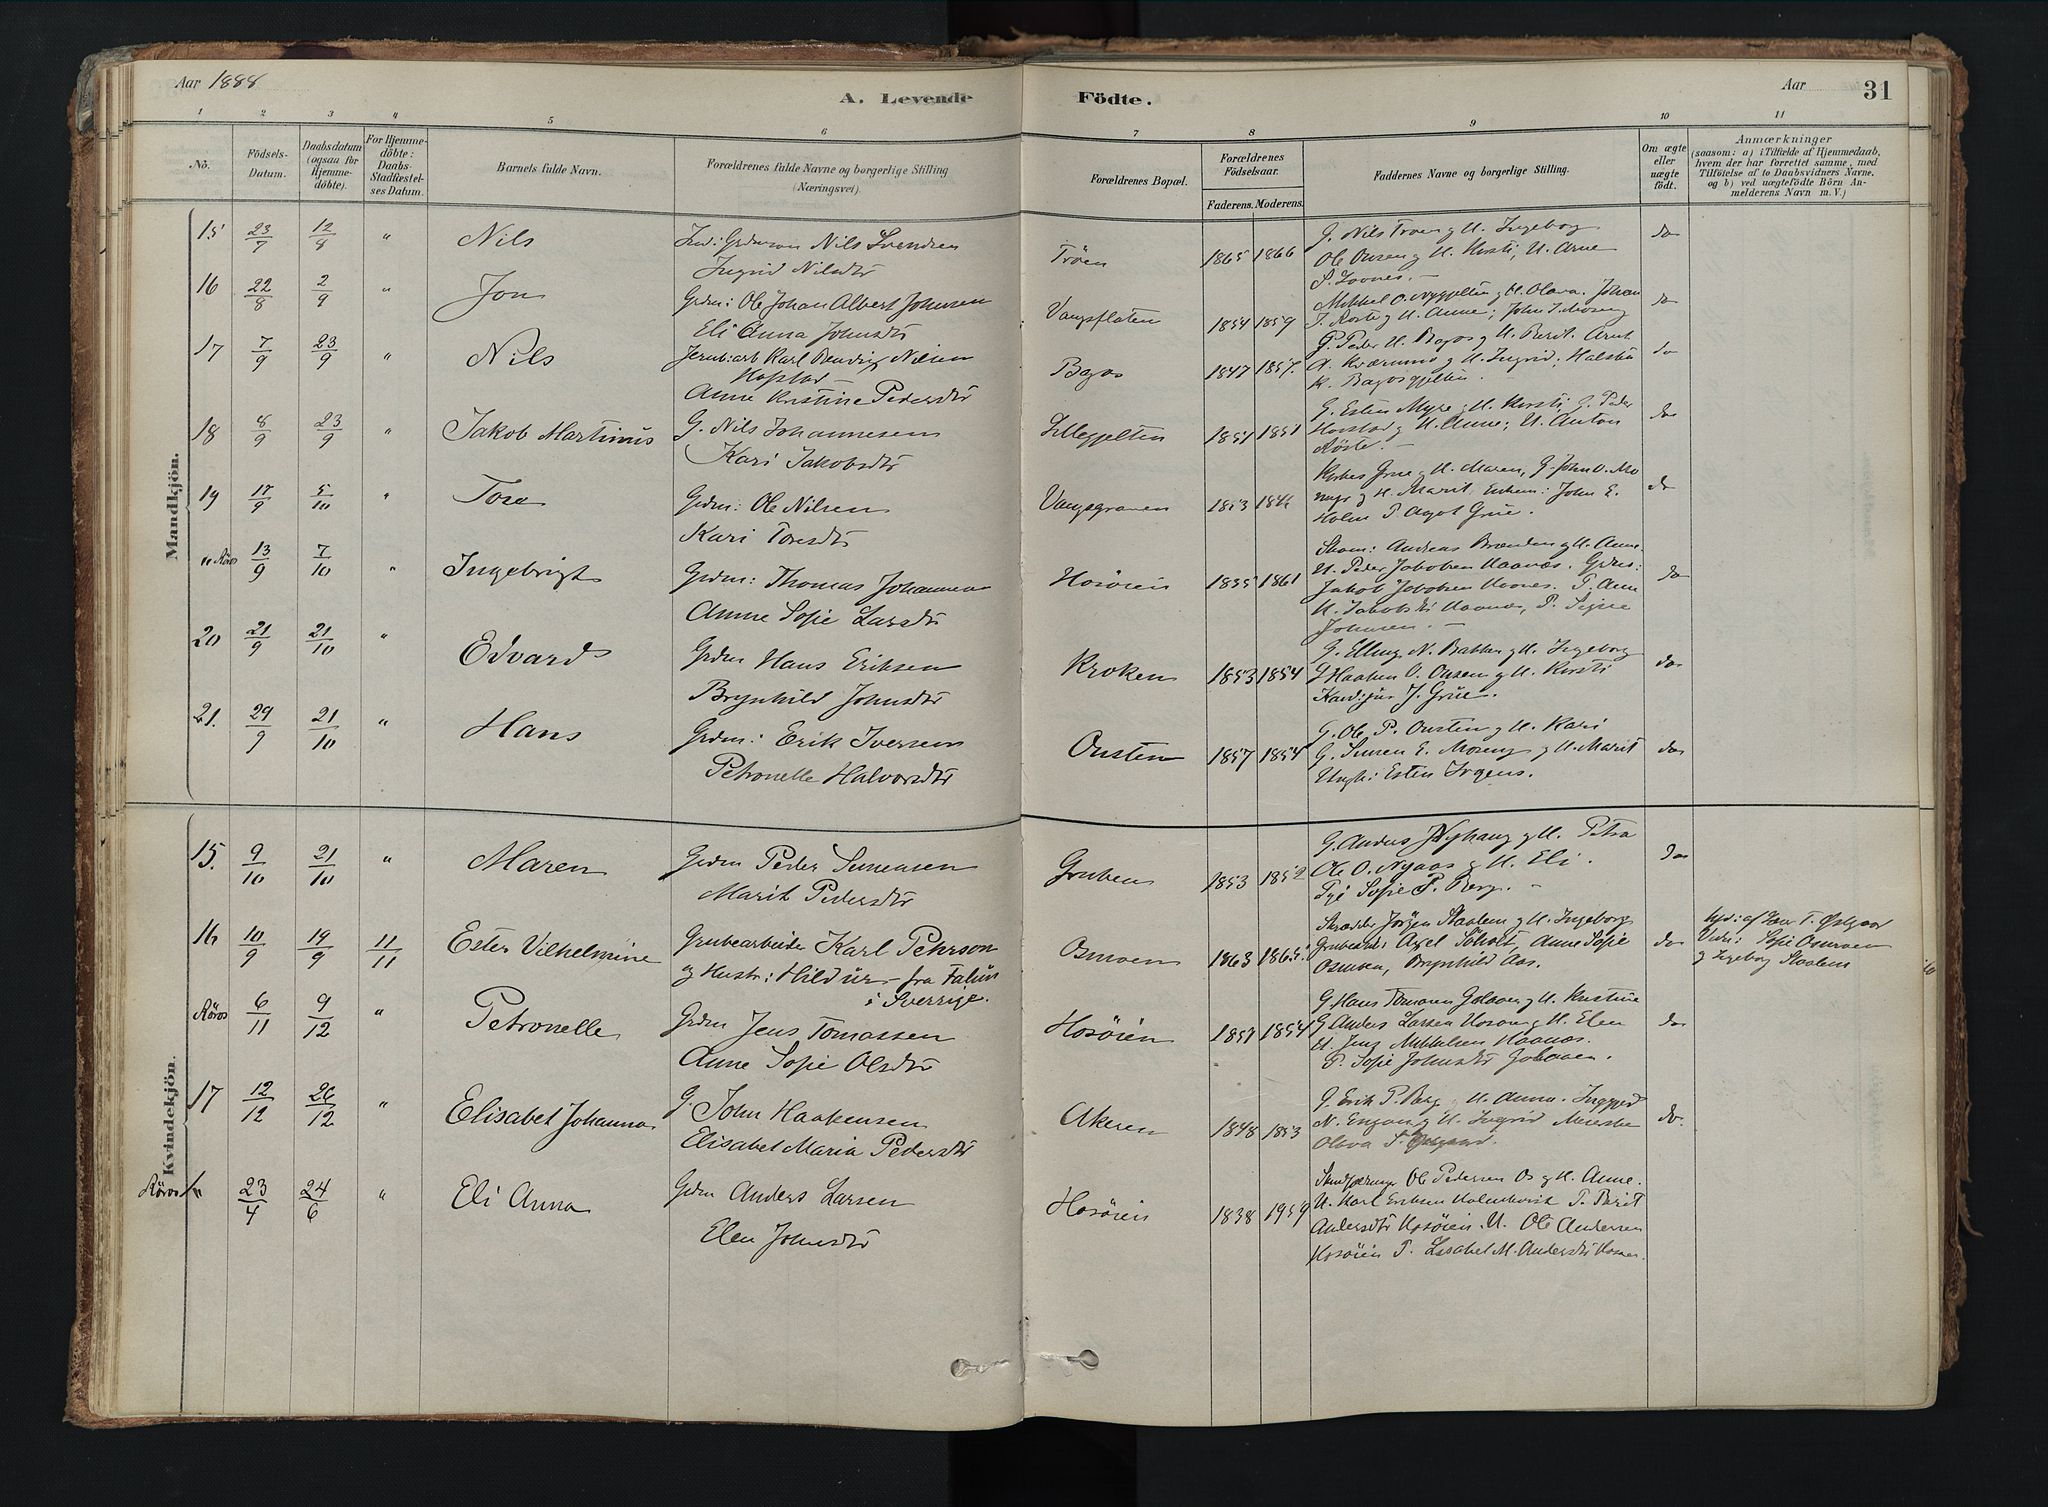 Aar 1888
A. Levende Födte.
Aar 31
1 2 3 4 5 6 7 8 9 10 11
No.
Födsels-Datum.
Daabsdatum (ogsaa for Hjemmedöbte).
For Hjemmedöbte: Daabs-Stadfæstelses Datum.
Barnets fulde Navn.
Forældrenes fulde Navne og borgerlige Stilling (Næringsvei).
Forældrenes Bopæl.
Forældrenes Födselsaar.
Faderens. Moderens.
Faddernes Navne og borgerlige Stilling.
Om ægte eller uægte födt.
Anmærkninger
(saasom: a) i Tilfælde af Hjemmedaab, hvem der har forrettet samme, med Tilföielse af to Daabsvidners Navne, og b) ved uægtefödte Börn Anmelderens Navn m. V.)
Mandkjön.
15 23/7 12/8 " Nils
Nils Svendsen
Ingrid Nilsdtr
Tröen 1865 1866
G. Nils Troen g H. Ingeborg
Ole Onsen g H. Kirsti, U. Arne
do
16 22/8 2/9 " Jon
Grdm: Ole Johan Albert Johnsen
Eli Anna Johnsdtr
Vangsflaten 1854 1859
do
17 7/9 23/9 " Nils
Jernb.arb Karl Nilsen
Anne Kristine Pedersdtr
Bagos 1847 1857.
do
18 8/9 23/9 " Jakob Martinus
G. Nils Johannesen
Kari Jakobsdtr
Lillegjelten 1851 1851
G. Esten Myre g H. Kirsti, G. Peder
g H. Anne; U. Anton
Röste. —
do
19 17/9 5/10 " Tore
Grdm: Ole Nilsen
Kari Toresdtr
Vangsgraven 1853
g H. Marit, Enkem: John E.
Holm P. Agot Grue.
do
" Röros 13/9 7/10 " Ingebrigt
Grdm: Thomas Johannesen
Anne Sofie Larsdtr
Hosöien 1835 1861
Andreas g H. Anne.
U. Peder Jakobsen Haanæs. Grdm:
Jakob Jakobsen Haanæs. P. Anne
P. Signe
Johnsen. —
do
20 21/9 21/10 " Edvard
Grdm Hans Eriksen
Brynhild Johnsdtr
Kroken 1853 1854
G. Elling N. Bakken g H. Ingeborg
G Haaken O. Onsen g H. Kirsti
J. Grue.
do
21. 29/9 21/10 " Hans
Grdm: Erik Iversen
Petronelle Halvorsdtr
Ousten 1857 1854
G. Ole P. Ousten g H. Kari
G. Simen E. Moseng g H. Marit
Ungk: Esten Irgens.
do
Kvindekjön.
15. 9/10 21/10 " Maren
Grdm Peder Simensen
Marit Pedersdtr
Gruben 1853 1852
G. Anders Nyhaug g H. Petra
Ole O. Nyaas g H. Eli.
Pige Sofie P. Berg. —
do
16 10/9 19/9 11/11 Ester Vilhelmine
Grubearbeider Karl Pehrson
og Hustr: Hildur - fra Falun
i Sverrige.
Osmoen 1863 1865.
Skrædder Jörgen Staalem g H. Ingeborg
Grubearb: Axel Söholt, Anne Sofie
Osmoen, Brynhild Aas.
do
Hjd: af Jon T. Östgaar
Vidn: Sofie Osmoen
g Ingeborg Staalem
Röros 6/11 9/12 " Petronelle
Grdm Jens Tomassen
Anne Sofie Olsdtr
Hosöien 1851 1854
G. Hans Tomasen Galaaen g H. Kristine
G Anders Larsen Hosöien g H. Elen
U. Jens Mikkelsen Haanæs.
P. Sofie Johnsdtr Galaaen.
do
17 12/12 26/12 " Elisabet Johanna
G. John Haakensen
Elisabet Maria Pedersdtr
Akeren 1848 1853
G. Erik P. Berg g H. Anna. Ingeborg
N. Engan g H. Ingrid
Oliva P.
do.
Röros " 23/4 24/6 " Eli Anna
Grdm Anders Larsen
Elen Johnsdtr
Hosöien 1838 1959
Ole Pedersen Os g H. Anne.
U. Karl Eriksen Holmkvist P. Berit
Andersdtr Hosöien. U. Ole Andersen
Hosöien P. Lisabet M. Andersdtr